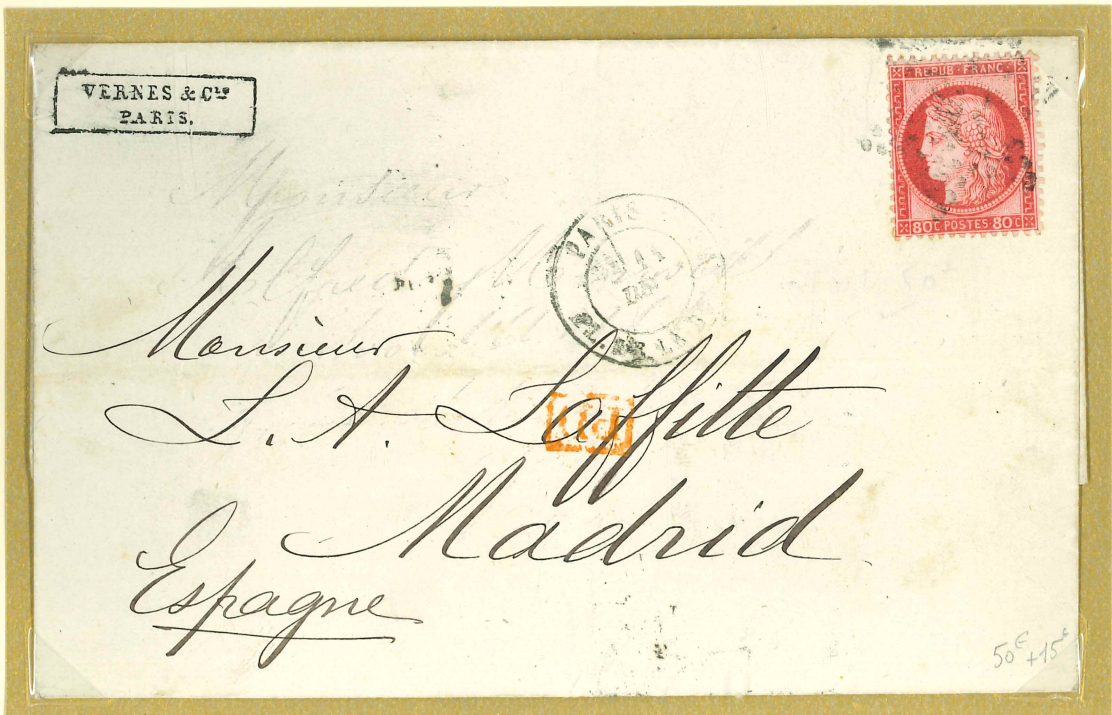 VERNES & Cie
PARIS.
REPUB·FRANC
80C POSTES 80C
Monsieur
PARIS
PL.
LA B
Monsieur
L. A. Laffitte
PD
Madrid
Espagne
50€ +15€